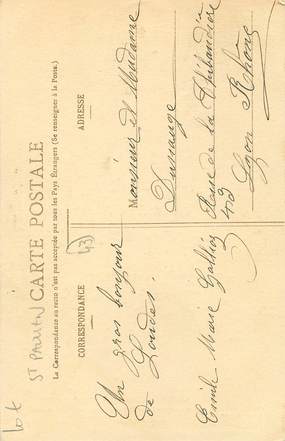 Lot
St PAULIEN
CARTE POSTALE
La Correspondance au recto n'est pas acceptée par tous les Pays Étrangers (Se renseigner à la Poste.)
CORRESPONDANCE
ADRESSE
(43)
Un gros bonjour
de Loudes.
Emile Marie
Monsieur et Madame
Rue de la Thibaudière
43
Lyon Rhône